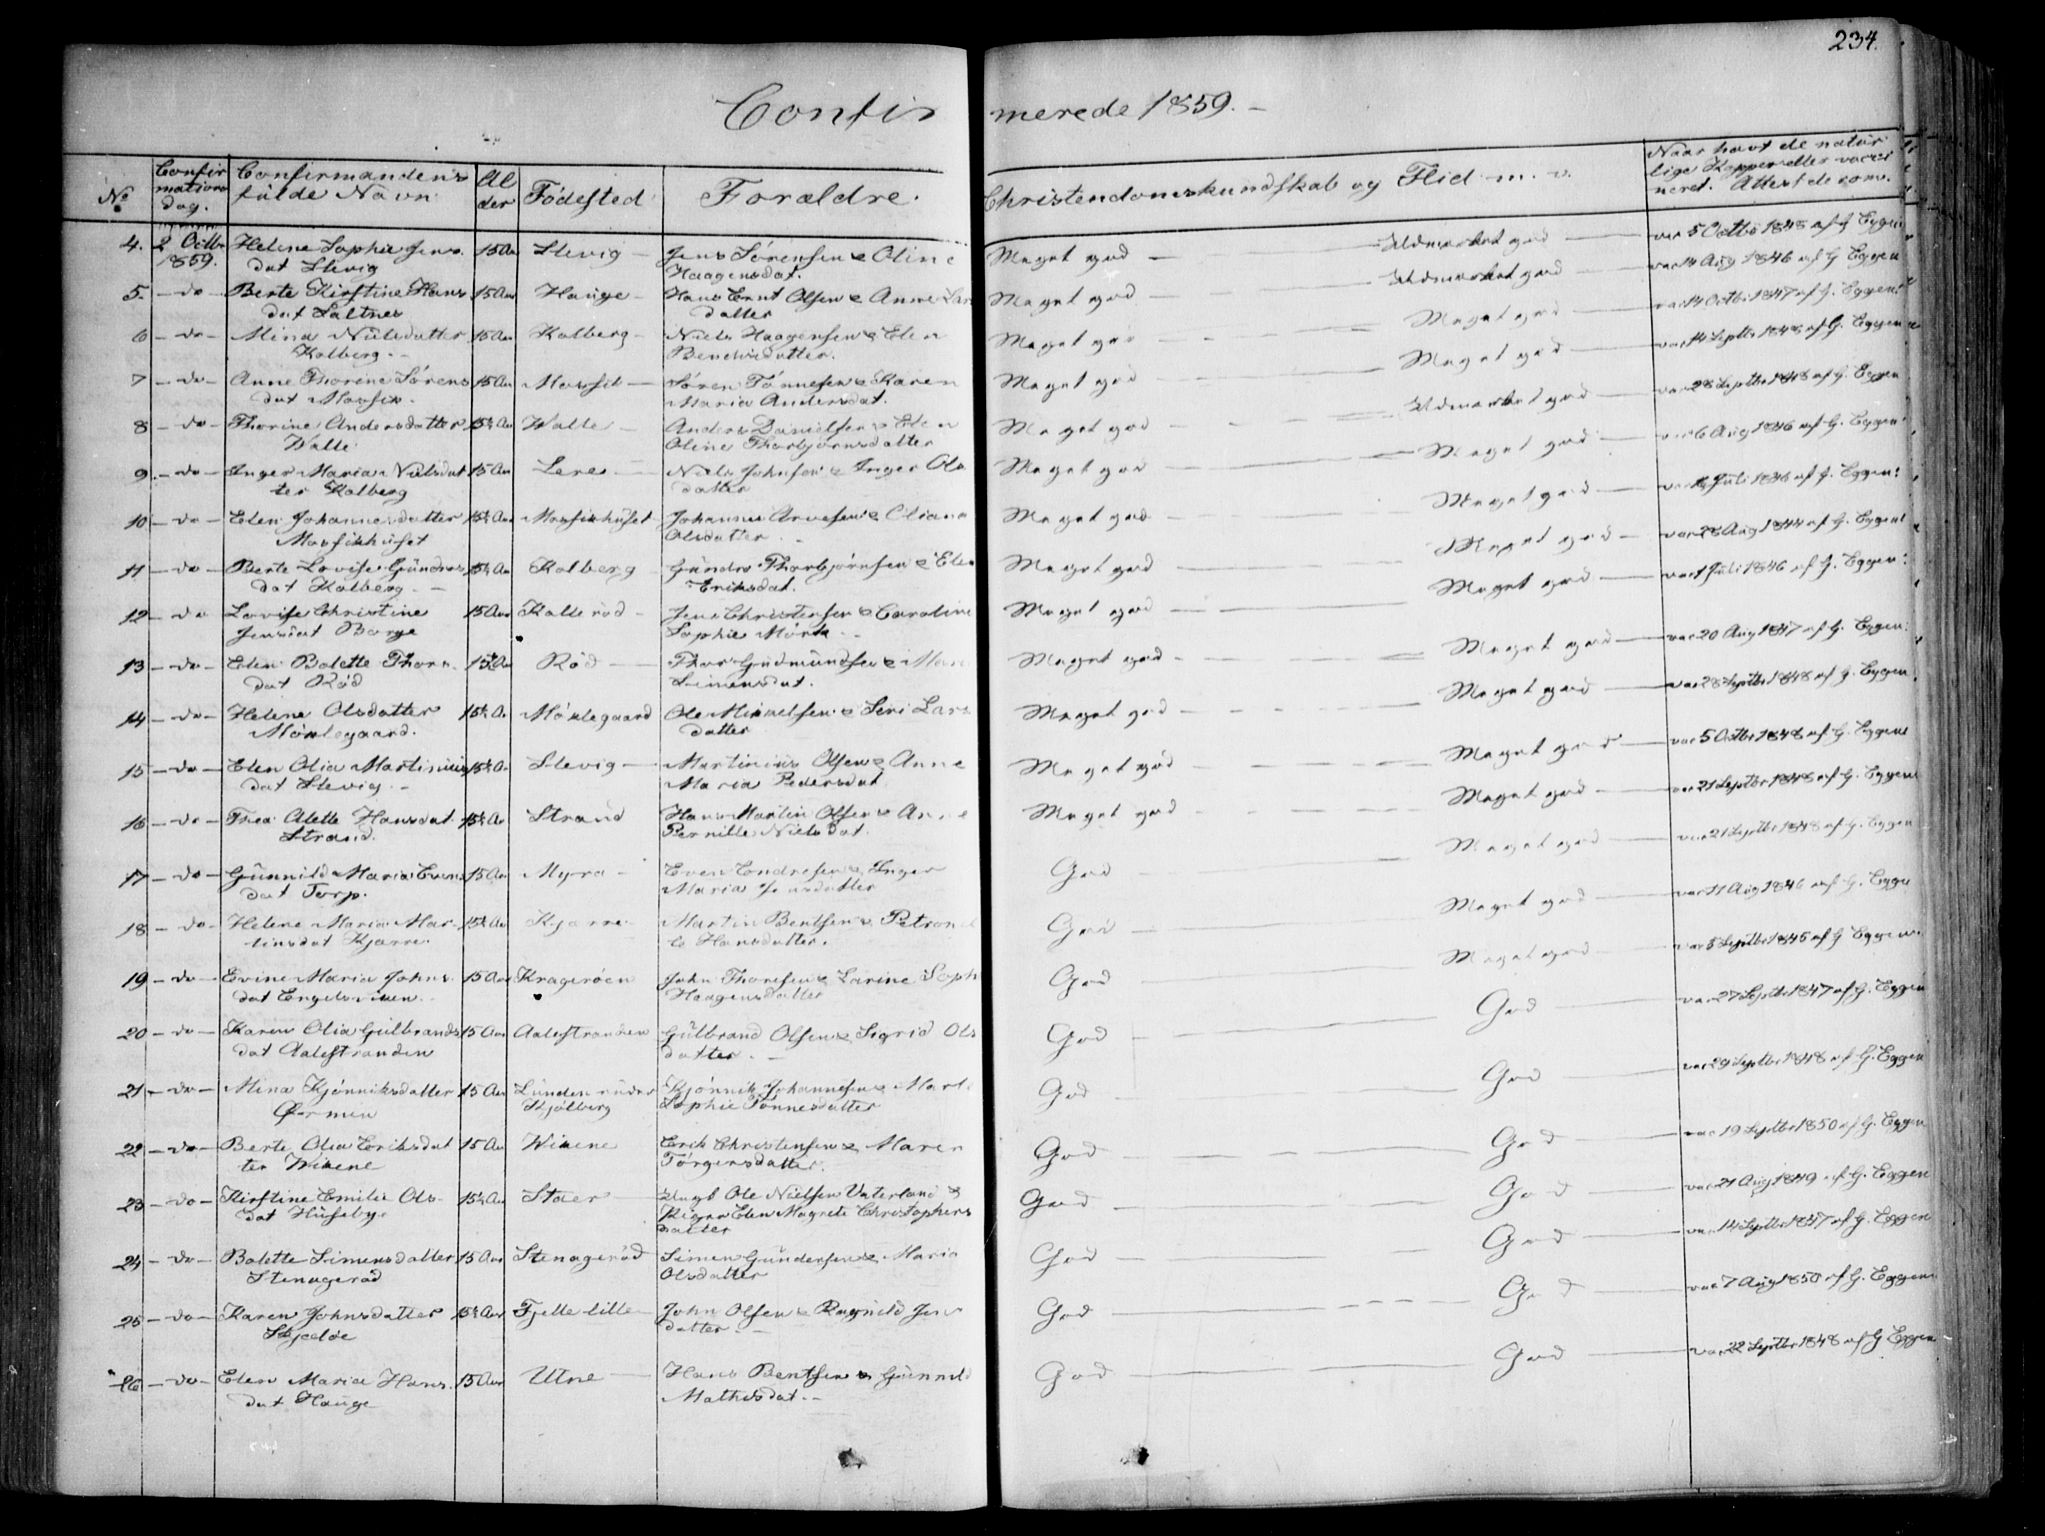 234.
Confirmerede 1859.
No
Confirmations dag.
Confirmandens fulde Navn
Alder
Födested
Forældre.
Christendomskundskab og Flid m. v.
Naar havt de naturlige Kopper eller vaccineret. Attest derom.
4. 2 Octbr 1859. Helene Sophie Jensdat Slevig 15 Aar Slevig Jens Sörensen & Oline Haagensdat. Meget god Udmærket god vac 5 Octbr 1848 af G Eggen
5. do Berte Kirstine Hansdat Saltnes 15 Aar Hauge Hans Ernt Olsen & Anne Lars datter Meget god Udmærket god vac 14 Aug 1846 af G Eggen
6 do Mina Nielsdatter Kolberg 15 Aar Kolberg Niels Haagensen & Elen Bendiksdatter. Meget god Meget god vac 14 Octbr 1847 af G. Eggen
7 do Anne Thorine Sörensdat Mosfik 15 Aar Mosfik Sören Tönnesen & Karen Maria Andersdat. Meget god Meget god vac 14 Septbr 1848 af G. Eggen
8 do Thorine Andersdatter Walle 15½ Aar Walle Anders Danielsen & Elen Oline Thorbjörnsdatter Meget god Udmærket god vac 28 Septbr 1848 af G. Eggen
9 do Inger Maria Nielsdatter Kolberg 15 Aar Lere Niels Johnsen & Inger Ols datter Meget god Meget god vac 6 Aug 1846 af G. Eggen
10 do Elen Johannesdatter Mosfikhuset 15½ Aar Mosfikhuset Johannes Arvesen & Oliana Olsdatter Meget god Meget god vac Juli 1846 af G. Eggen
11 do Berte Lovise Gundersdat Kolberg 15½ Aar Kolberg Gunder Thorbjörnsen & Elen Eriksdat. Meget god Meget god vac 28 Aug 1844 af G. Eggen
12 do Lovise Christine Jensdat Borge 15 Aar Kalleröd Jens Christensen & Caroline Sophie Mörk Meget god Meget god vac 1 Juli 1846 af G. Eggen
13 do Elen Bolette Thorsdat Röd 15½ Aar Röd Thor Gudmundsen & Maren Simensdat. Meget god Meget god vac 20 Aug 1847 af G. Eggen
14 do Helene Olsdatter Mörlegaard. 15½ Ar Mörlegaard Ole Mikkelsen & Seri Lars datter Meget god Meget god vac 28 Septbr 1848 af G. Eggen
15 do Elen Olia Martiniusdat Slevig 15½ Ar Slevig Martinius Olsen & Anne Maria Pedersdat Meget god Meget god vac 5 Octbr 1848 af G. Eggen
16 do Thea Alette Hansdat Strand. 15½ Aar Strand Hans Martin Olsen & Anne Pernille Nielsdat. Meget god Meget god vac 21 Septbr 1848 af G. Eggen
17 do Gunnild Maria Evensdat Torp. 15 Aar Myra Even Endresen & Inger Maria Jensdatter God Meget god vac 21 Septbr 1848 af G. Eggen
18 do Helene Maria Martinsdat Kjærre. 15½ Aar Kjærre Martin Bentsen & Petronelle Hansdatter. God Meget god vac 11 Aug 1846 af G. Eggen
19 do Evine Maria Johnsdat Engelsviken 15 Aar Krageröen John Thoresen & Larine Soph Haagensdatter God Meget god vac 5 Septbr 1845 af G Eggen
20 do Karen Olia Gulbrandsdat Aalestranden 15 Aar Aalestranden Gulbrand Olsen & Sigrid Ols datter. God God vac 27 Septbr 1847 af G. Eggen
21 do Mina Kjönniksdatter Ørmen 15 Aar Lunden under Kjölberg Kjönnik Johannesen & Mart Sophie Tönnesdatter God God vac 29 Septbr 1848 af G. Eggen
22 do Berte Olia Eriksdatter Wikene 15 Aar Wikene Erik Christensen & Maren Törgersdatter. God God vac 19 Septbr 1850 af G. Eggen
23 do Kirstine Emilie Olsdat Huseby. 15½ Aar Staer Ungk Ole Nielsen Vaterland & Pigen Elen Magrete Christophers datter God God vac 21 Aug 1849 af G. Eggen
24 do Bolette Simensdatter Stenageröd 15 Aar Stenageröd Simen Gundersen & Maria Olsdatter God God vac 14 Septbr 1847 af G. Eggen
25 do Karen Johnsdatter Skjelöe 15½ Aar Fjelle lille John Olsen & Ragnild Jens datter God God vac 7 Aug 1850 af G. Eggen
26 do Elen Maria Hansdat Hauge 15 Aar Utne Hans Bentsen & Gunnild Mathisdat. God God vac 22 Septbr 1848 af G Eggen